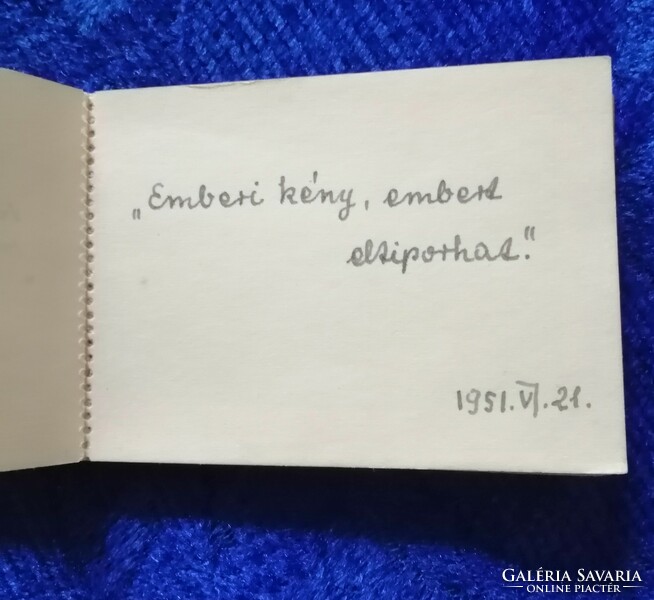 „Emberi kény, embert
eltiporhat."
1951. VI. 21.
GALÉRIA SAVARIA
ONLINE PIACTÉR